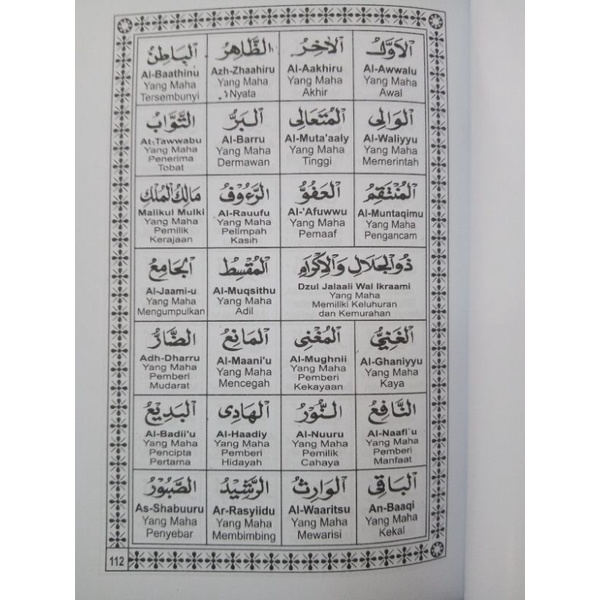 الأوّل
Al-Awwalu
Yang Maha
Awal
الآخر
Al-Aakhiru
Yang Maha
Akhir
الظّاهر
Azh-Zhaahiru
Yang Maha
Nyata
الباطن
Al-Baathinu
Yang Maha
Tersembunyi
الوالي
Al-Waliyyu
Yang Maha
Memerintah
المتعالي
Al-Muta'aaly
Yang Maha
Tinggi
البرّ
Al-Barru
Yang Maha
Dermawan
التّوّاب
At-Tawwabu
Yang Maha
Penerima
Tobat
المنتقم
Al-Muntaqimu
Yang Maha
Pengancam
العفوّ
Al-'Afuwwu
Yang Maha
Pemaaf
الرّءوف
Al-Rauufu
Yang Maha
Pelimpah
Kasih
مالك الملك
Malikul Mulki
Yang Maha
Pemilik
Kerajaan
ذو الجلال والإكرام
Dzul Jalaali Wal Ikraami
Yang Maha
Memiliki Keluhuran
dan Kemurahan
المقسط
Al-Muqsithu
Yang Maha
Adil
الجامع
Al-Jaami-u
Yang Maha
Mengumpulkan
الغنيّ
Al-Ghaniyyu
Yang Maha
Kaya
المغني
Al-Mughnii
Yang Maha
Pemberi
Kekayaan
المانع
Al-Maani'u
Yang Maha
Mencegah
الضّارّ
Adh-Dharru
Yang Maha
Pemberi
Mudarat
النّافع
Al-Naafi'u
Yang Maha
Pemberi
Manfaat
النّور
Al-Nuuru
Yang Maha
Pemilik
Cahaya
الهادي
Al-Haadiy
Yang Maha
Pemberi
Hidayah
البديع
Al-Badii'u
Yang Maha
Pencipta
Pertama
الباقي
An-Baaqi
Yang Maha
Kekal
الوارث
Al-Waaritsu
Yang Maha
Mewarisi
الرّشيد
Ar-Rasyiidu
Yang Maha
Membimbing
الصّبور
As-Shabuuru
Yang Maha
Penyebar
112